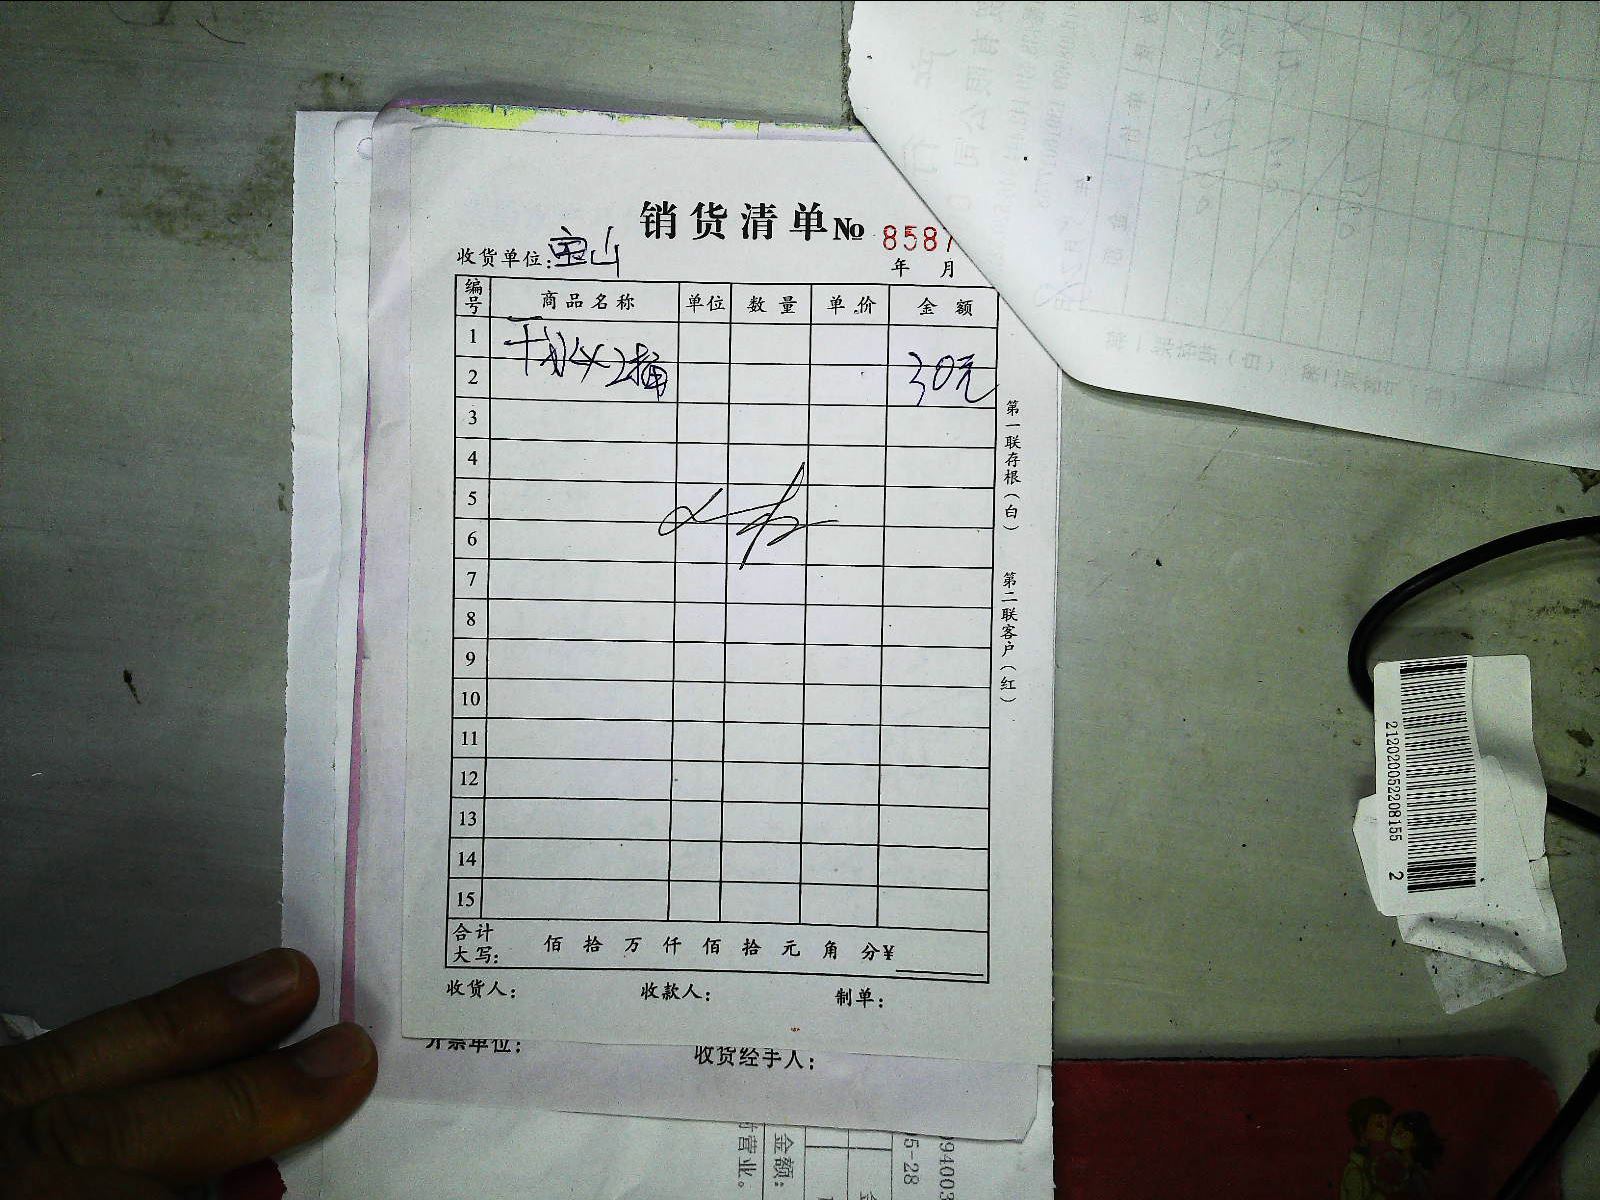 销货清单 № 8587
收货单位：宝山
年 月
编号 商品名称 单位 数量 单价 金额
1
2 2桶 30元
3
4
5
6
7
8
9
10
11
12
13
14
15
合计
大写： 佰 拾 万 仟 佰 拾 元 角 分 ¥
收货人： 收款人： 制单：
第一联存根（白） 第二联客户（红）
开票单位： 收货经手人：
金额：
营业。
5-28
994003
2120200522208155 2